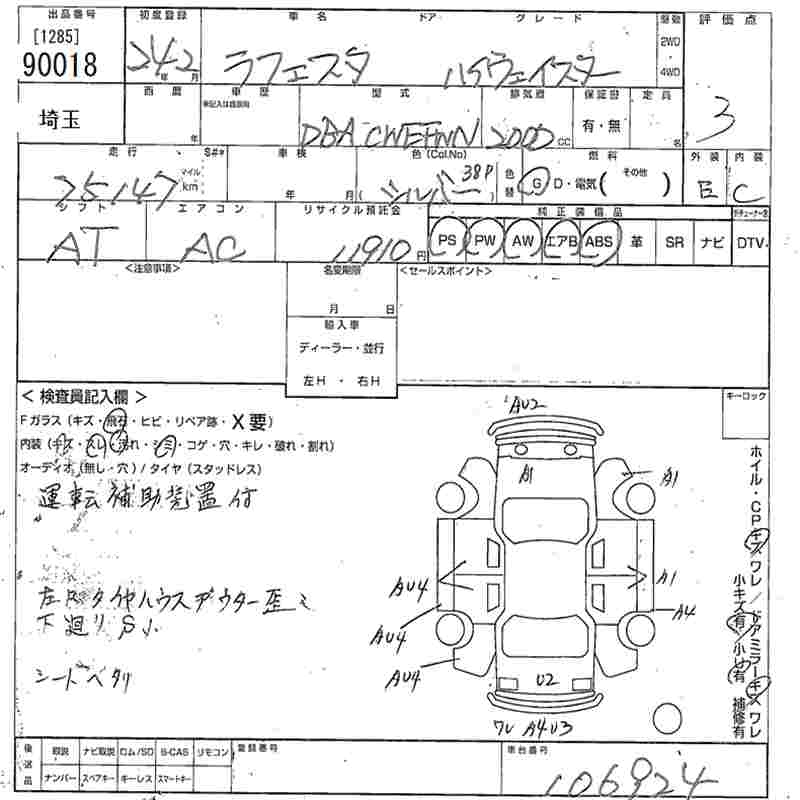 出品番号 初度登録 車名 ドア グレード 駆動 評価点
[1285]
90018 24年2月 ラフェスタ ハイウェイスター 2WD 4WD 3
埼玉 西暦 年 車歴 型式 排気量 保証書 定員
※記入は自家用
DBA CWEFWN 2000cc 有・無 名
走行 S#* 車検 色(Col.No) 燃料 外装 内装
75147 マイル km 年 月 (シルバー 38P) 色替 G D・電気( その他 ) E C
シフト エアコン リサイクル預託金 純正装備品
AT AC 11910円 PS PW AW エアB ABS 革 SR ナビ DTV
<注意事項> 名変期限 <セールスポイント>
月 日
輸入車
ディーラー・並行
左H・右H
<検査員記入欄> キーロック
Fガラス(キズ・飛石・ヒビ・リペア跡・X要)
内装(キズ・スレ・汚れ・シミ・コゲ・穴・キレ・破れ・割れ)
オーディオ(無し・穴)/タイヤ(スタッドレス)
運転補助装置付
左Rタイヤハウスアウター歪ミ
下廻りS小
シートヘタリ
AU2
A1
A1
AU4
A1
AU4
A4
AU4
U2
ワレ A4U3
ホイル・CPキズワレ/ドアミラーキズワレ
小キズ有/小U有 補修有
後送品 取説 ナビ取説 ロム/SD B-CAS リモコン 登録番号 車台番号
ナンバー スペアキー キーレス スマートキー 106924